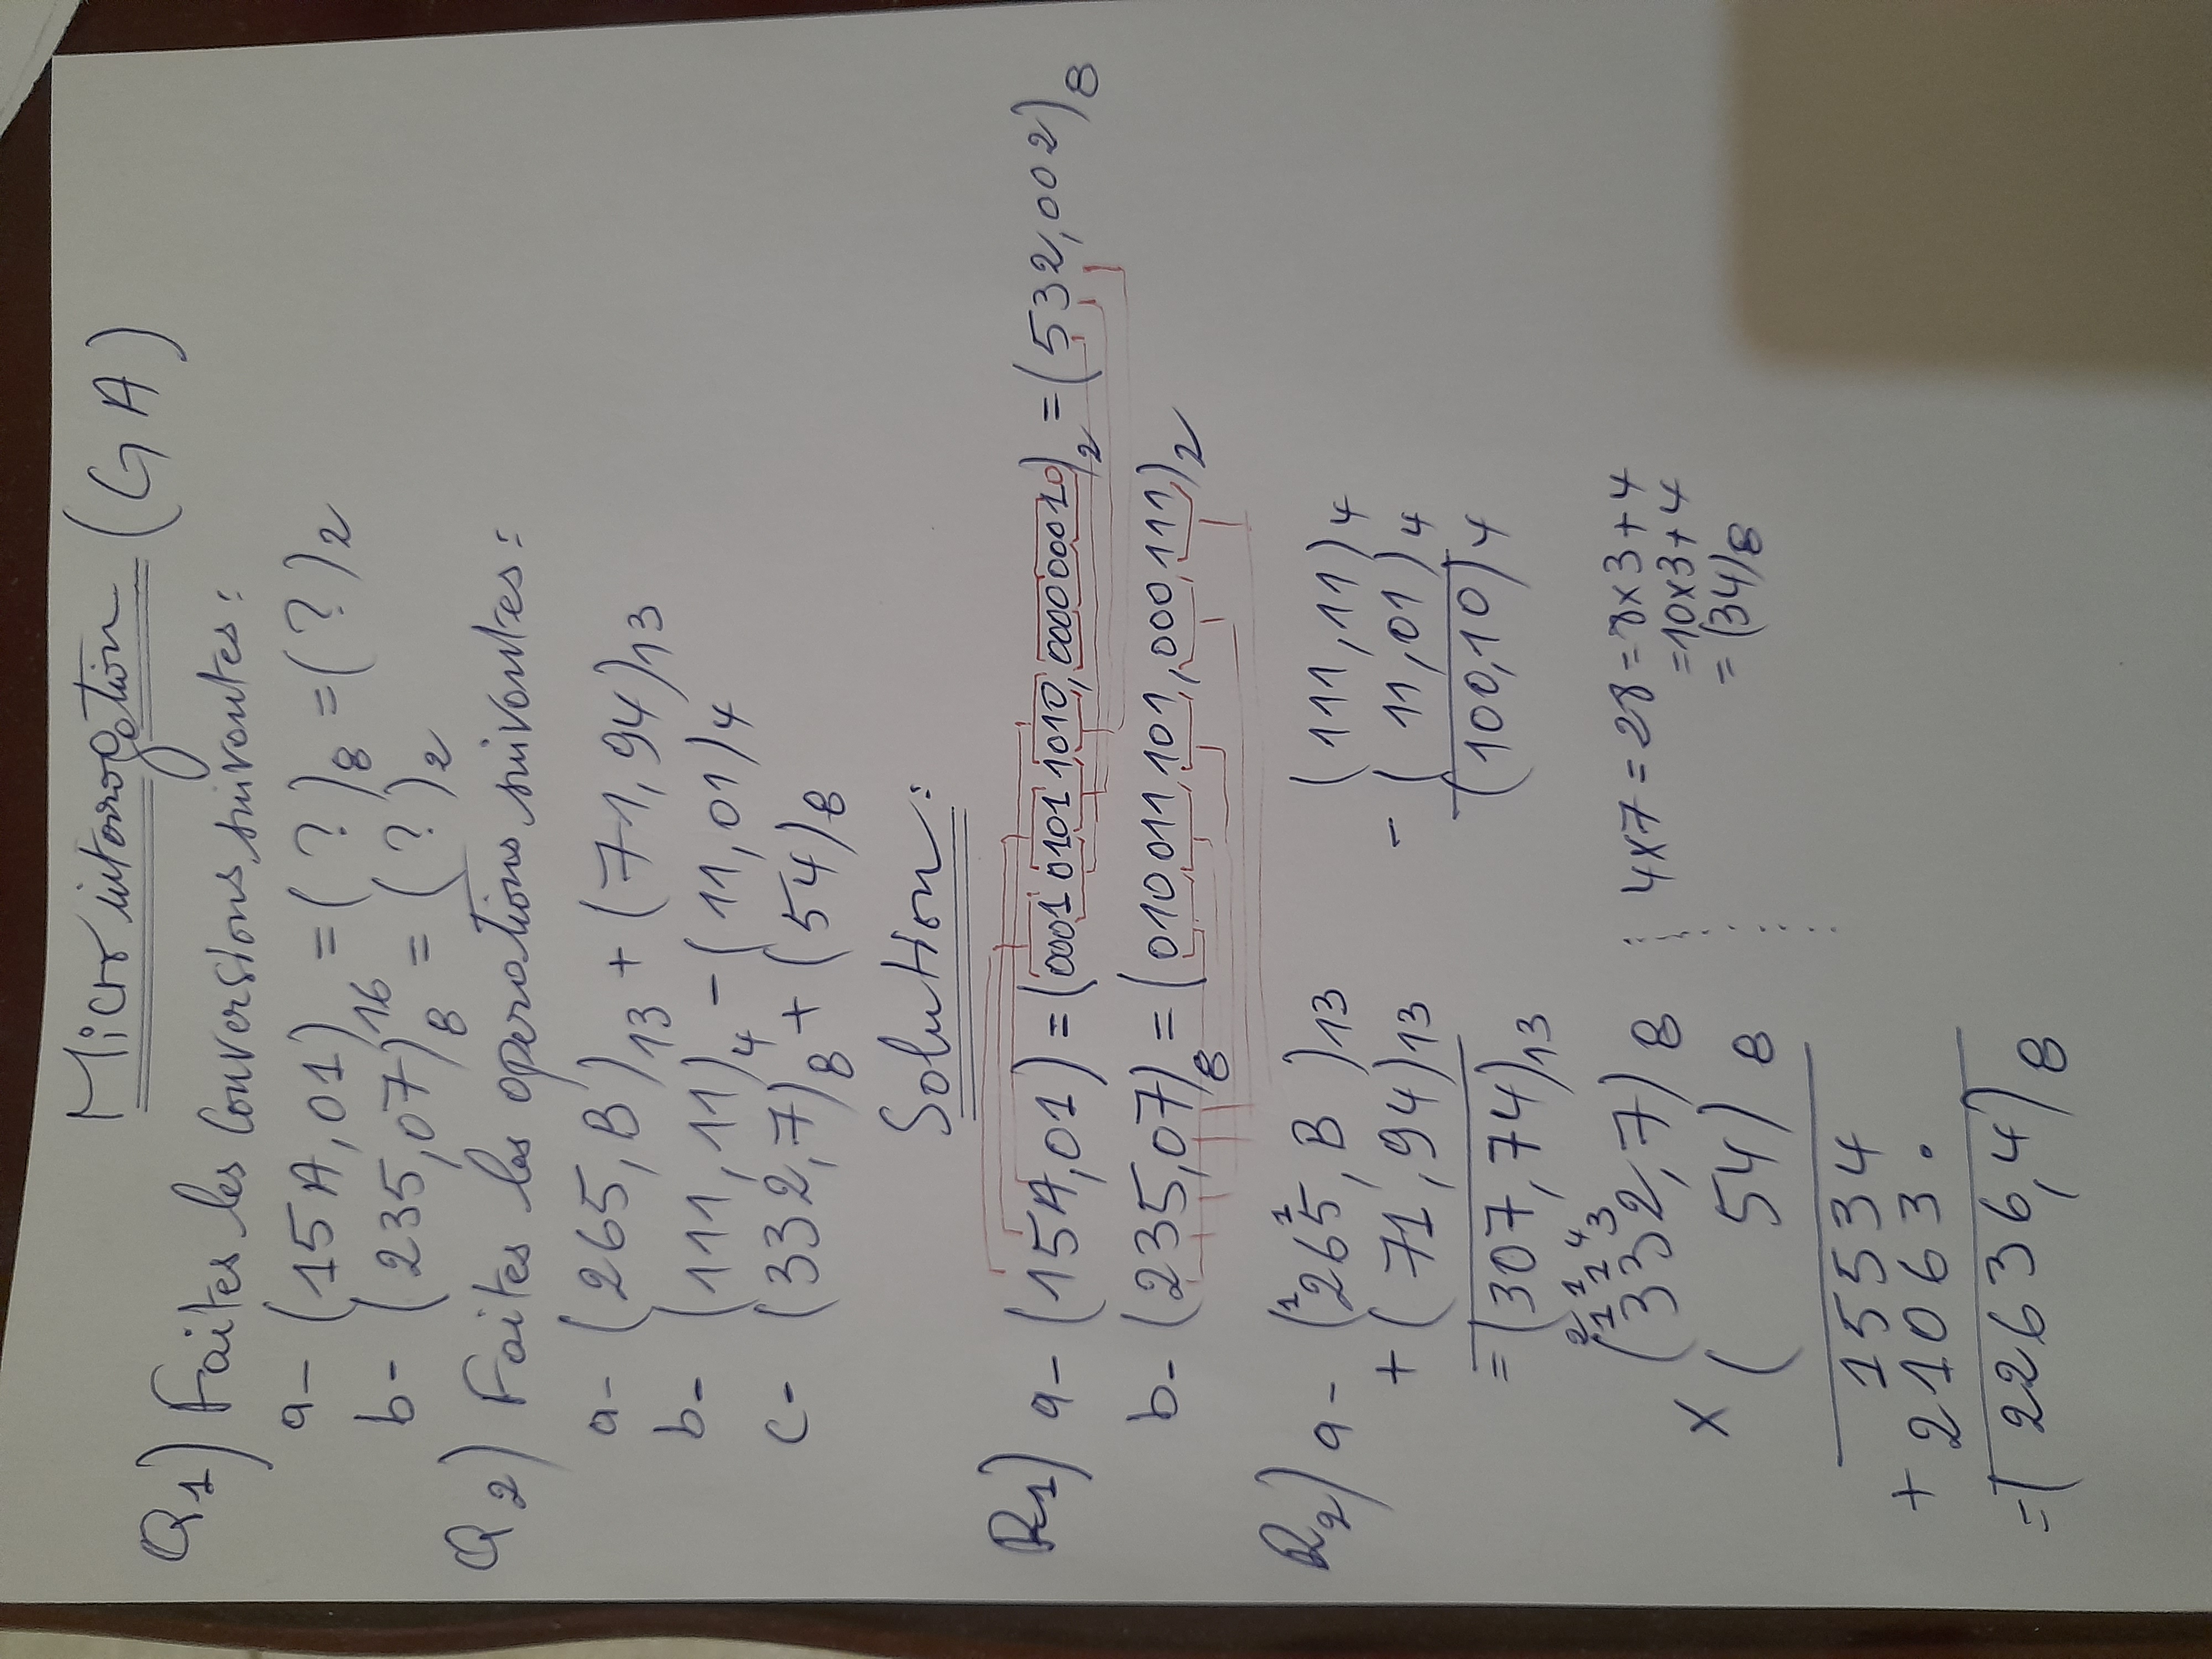 Micro interrogation (GA)
Q1) Faites les conversions suivantes:
a- (15A,01)16 = (?)8 = (?)2
b- (235,07)8 = (?)2
Q2) Faites les operations suivantes:
a- (265,B)13 + (71,94)13
b- (111,11)4 - (11,01)4
c- (332,7)8 + (54)8
Solution:
R1) a- (15A,01) = (0001 0101 1010,0000 00010)2 = (532,002)8
b- (235,07)8 = (010 011 101,000 111)2
R2) a- (265,B)13
+ (71,94)13
= (307,74)13
(111,11)4
- (11,01)4
(100,10)4
2 1 1
1 2 4 3
(332,7)8
x (54)8
15534
+ 21063.
= (22636,4)8
4x7 = 28 = 8x3+4
= 10x3+4
= (34)8